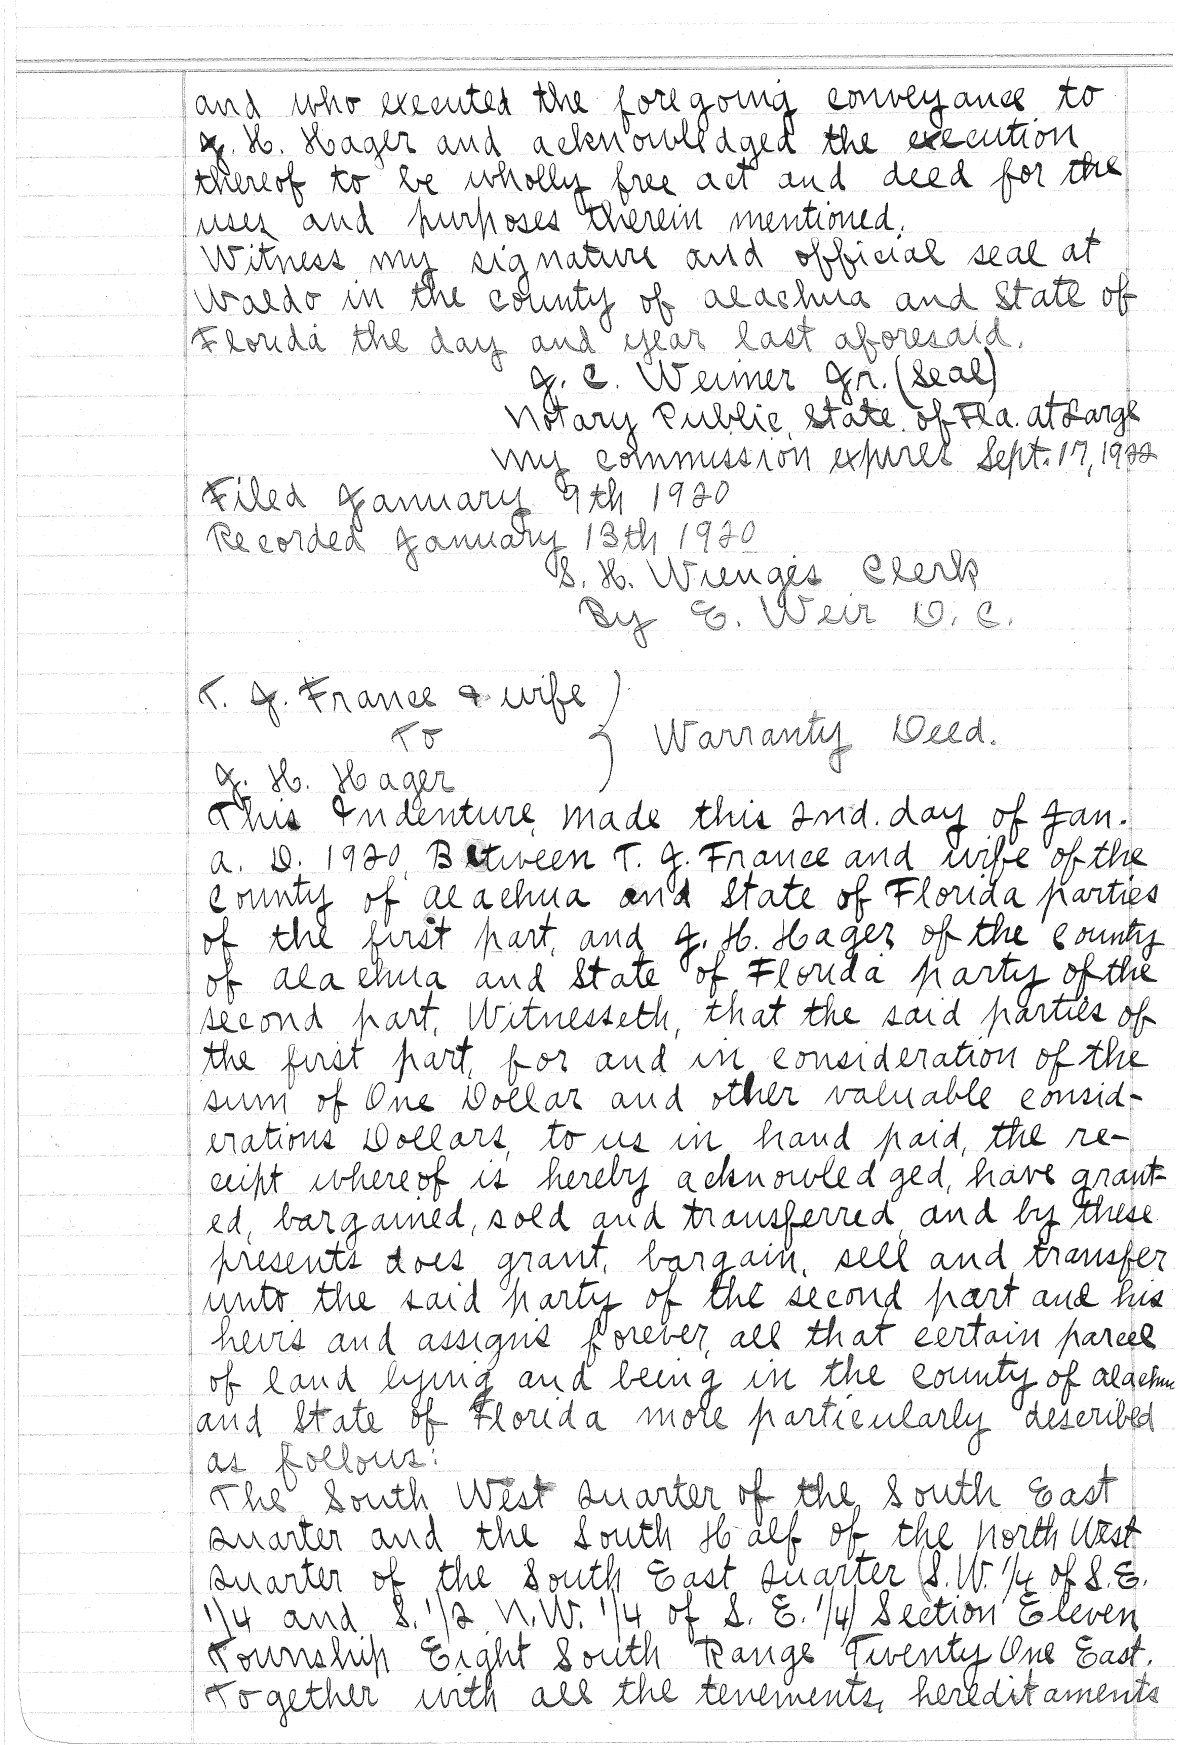 and who executed the foregoing conveyance to
J. H. Hager and acknowledged the execution
thereof to be wholly free act and deed for the
uses and purposes therein mentioned.
Witness my signature and official seal at
Waldo in the county of Alachua and State of
Florida the day and year last aforesaid.
J. C. Weimer Jr. (Seal)
Notary Public, State of Fla. at Large
My commission expires Sept. 17, 1922
Filed January 9th 1920
Recorded January 13th 1920
S. H. Wienges Clerk
By E. Weir D. C.
T. J. France & wife
To
Warranty Deed.
J. H. Hager
This Indenture, made this 2nd. day of Jan.
A. D. 1920, Between T. J. France and wife of the
County of Alachua and State of Florida parties
of the first part, and J. H. Hager of the County
of Alachua and State of Florida party of the
second part, Witnesseth, that the said parties of
the first part, for and in consideration of the
sum of One Dollar and other valuable consid-
erations Dollars, to us in hand paid, the re-
ceipt whereof is hereby acknowledged, have grant-
ed, bargained, sold and transferred, and by these
presents does grant, bargain, sell and transfer
unto the said party of the second part and his
heirs and assigns forever, all that certain parcel
of land lying and being in the County of Alachua
and State of Florida more particularly described
as follows:
The South West Quarter of the South East
Quarter and the South Half of the North West
Quarter of the South East Quarter (S.W. 1/4 of S.E.
1/4 and S. 1/2 N.W. 1/4 of S. E. 1/4) Section Eleven
Township Eight South Range Twenty One East.
Together with all the tenements, hereditaments